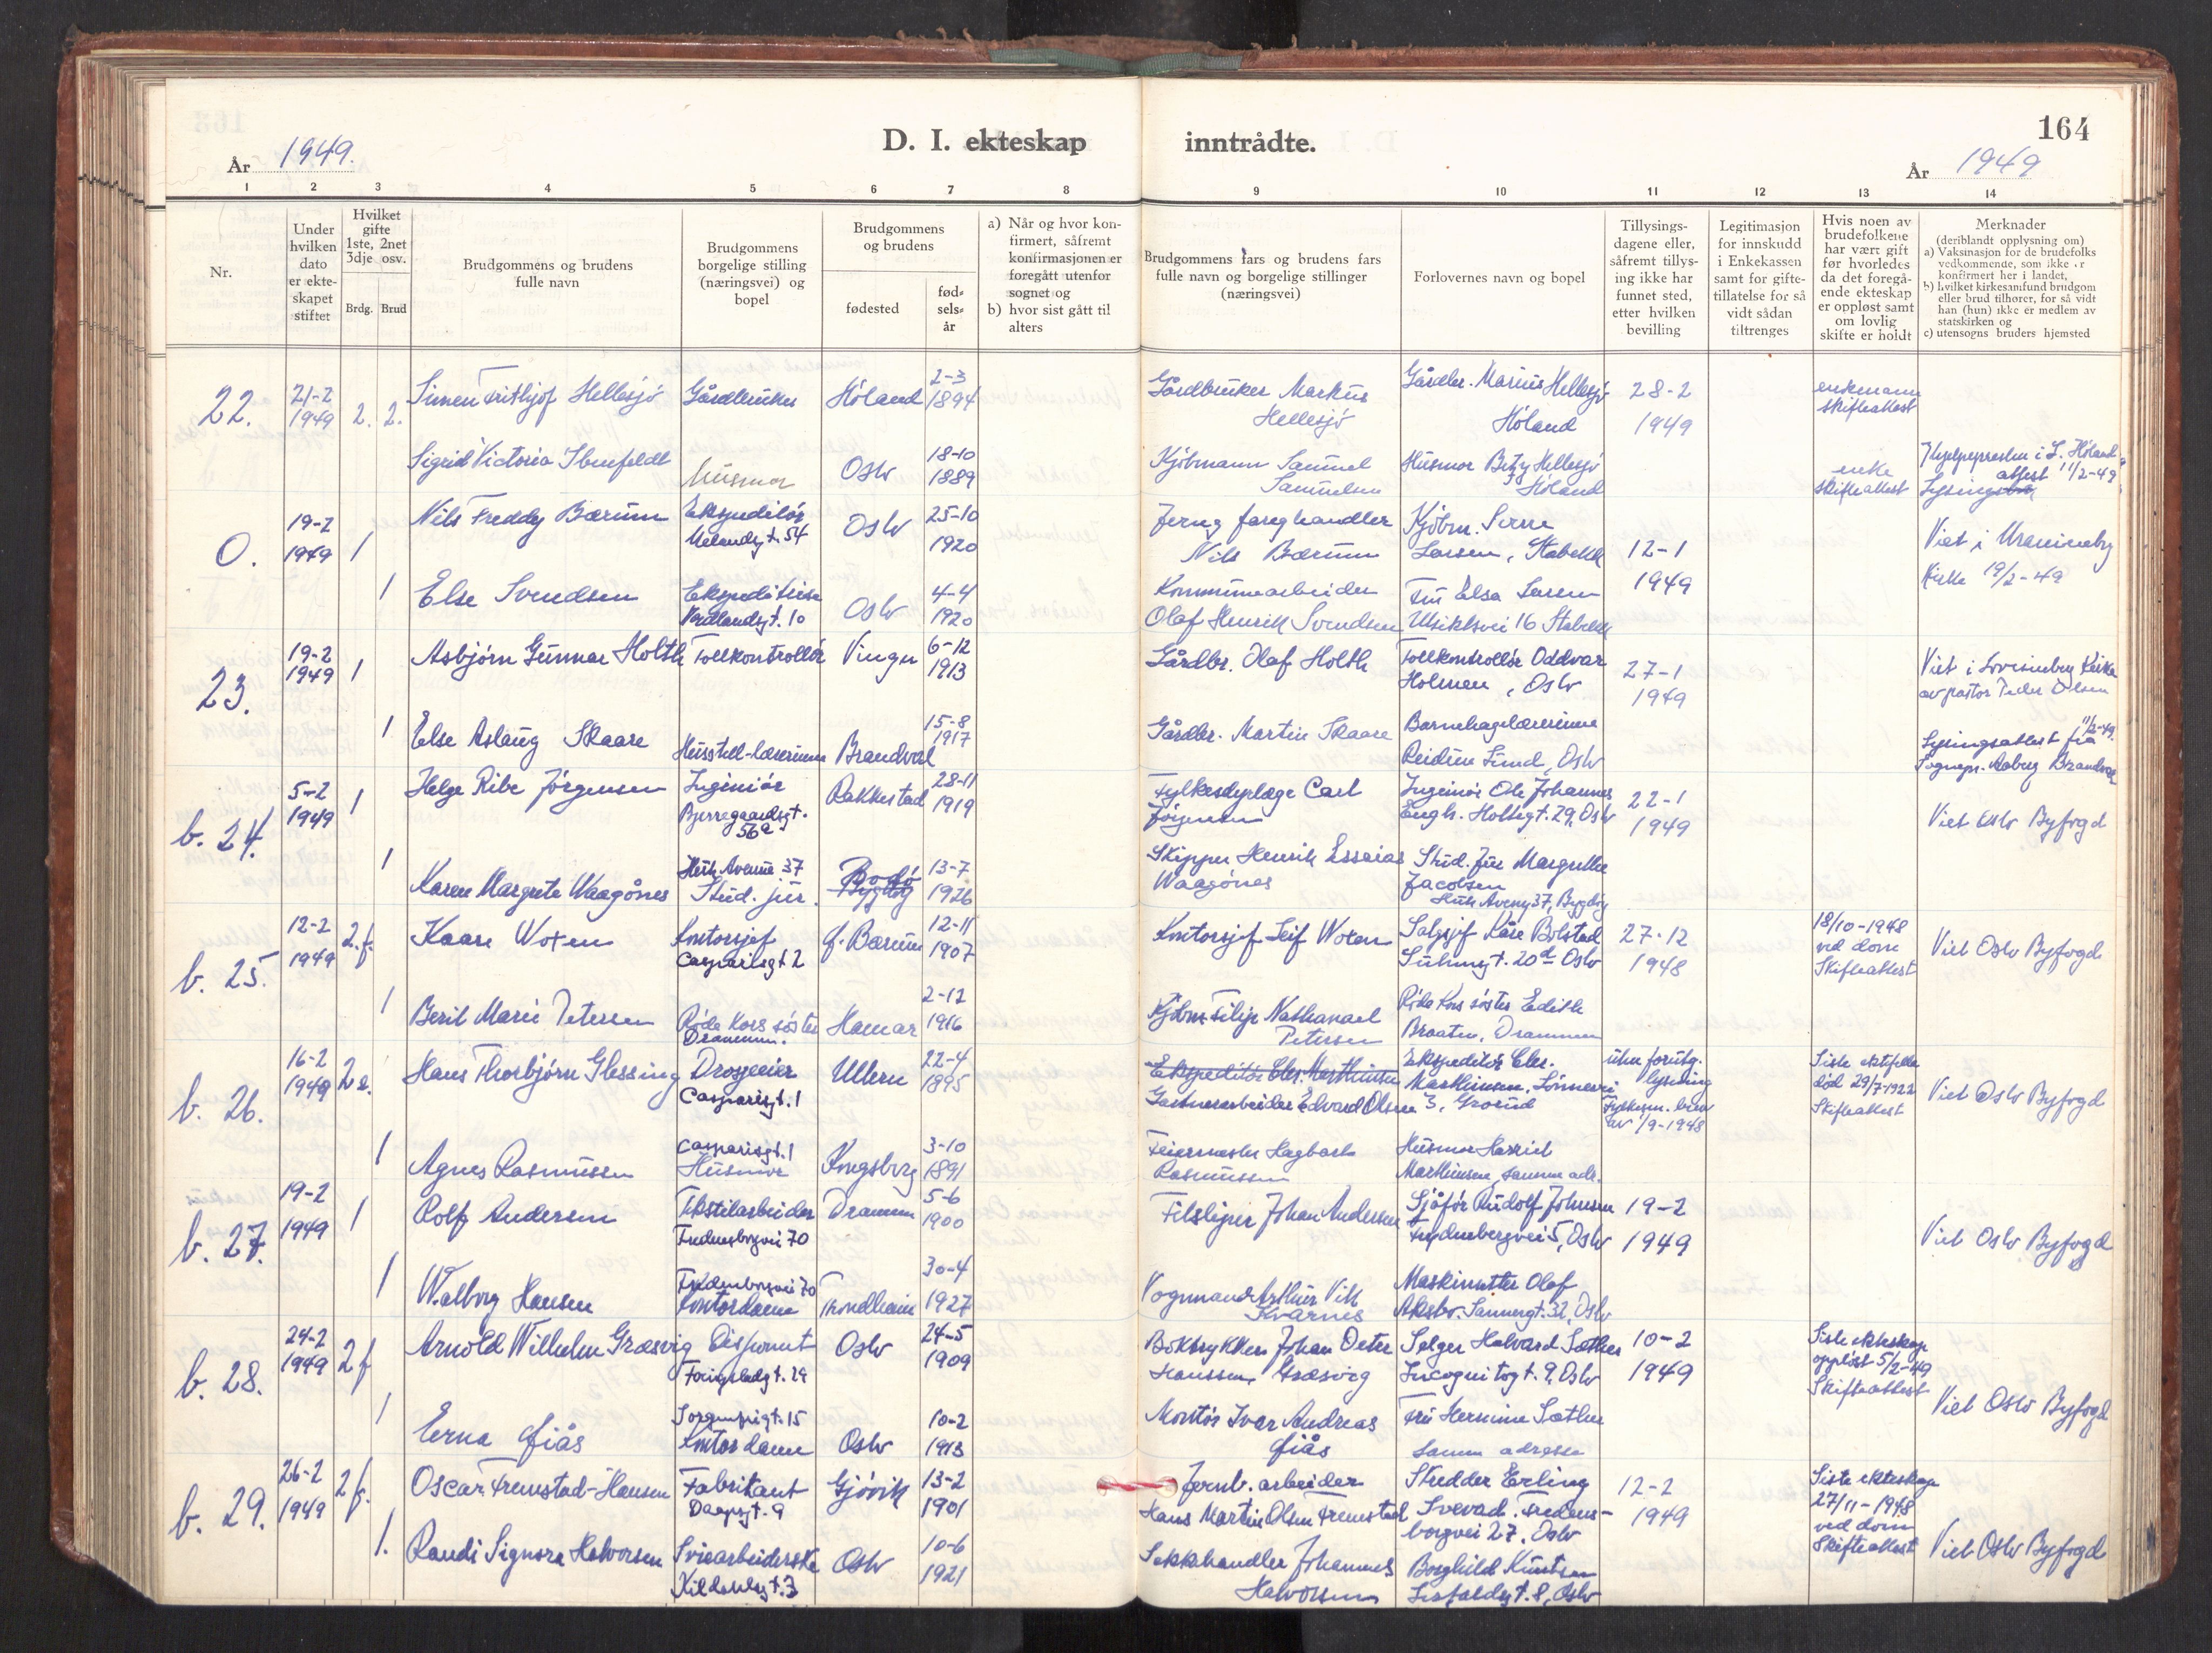 164
År 1949.
D. I. ekteskap inntrådte.
År 1949
1 2 3 4 5 6 7 8 9 10 11 12 13 14
Nr.
Under hvilken dato er ekteskapet stiftet
Hvilket gifte 1ste, 2net 3dje osv.
Brdg. Brud
Brudgommens og brudens fulle navn
Brudgommens borgelige stilling (næringsvei) og bopel
Brudgommens og brudens
fødested
fødselsår
a) Når og hvor konfirmert, såfremt konfirmasjonen er foregått utenfor sognet og
b) hvor sist gått til alters
Brudgommens fars og brudens fars fulle navn og borgelige stillinger (næringsvei)
Forlovernes navn og bopel
Tillysingsdagene eller, såfremt tillysing ikke har funnet sted, etter hvilken bevilling
Legitimasjon for innskudd i Enkekassen samt for giftetillatelse for så vidt sådan tiltrenges
Hvis noen av brudefolkene har vært gift før hvorledes da det foregående ekteskap er oppløst samt om lovlig skifte er holdt
Merknader
(deriblandt opplysning om)
a) Vaksinasjon for de brudefolks vedkommende, som ikke er konfirmert her i landet,
b) hvilket kirkesamfund brudgom eller brud tilhører, for så vidt han (hun) ikke er medlem av statskirken og
c) utensogns bruders hjemsted
22. 21-2 1949 2. 2.
Simen Frithjof Hellesjø
Gårdbruker
Høland
2-3 1894
Gårdbruker Markus Hellesjø
Gårdbr. Marius Hellesjø Høland
28-2 1949
enkemann skifteattest
Sigrid Victoria
Husmor
Oslo
18-10 1889
Kjøbmann Samuel Samuelsen
Husmor Betzy Hellesjø Høland
enke skifteattest
Hjelpepresten i S. Høland
attest 11/2-49
0. 19-2 1949 1
Nils Freddy Bærum
Ekspeditør
Oslo
25-10 1920
Nils Bærum
Kjøbm. Larsen, Stabekk
12-1 1949
Viet i Uranienborg Kirke 19/2-49
1
Else Svendsen
Ekspeditrise
Nordlandsgt. 10
Oslo
4-4 1920
Kommunearbeider
Olaf Henrik Svendsen
Fru Elsa Larsen
Utsiktsvei 16 Stabekk
23. 19-2 1949 1
Asbjørn Gunnar Holth
Tollkontrollør
Vinger
6-12 1913
Gårdbr. Olaf Holth
Tollkontrollør Oddvar Holmen, Oslo
27-1 1949
Viet i Lovisenberg Kirke
av pastor Peder Olsen
1
Else Aslaug Skaare
Husstell-lærerinne
Brandval
15-8 1917
Gårdbr. Martin Skaare
Barnehagelærerinne
Reidun Lund, Oslo
Lysingsattest fra 11/2-49.
Sognepr. Aaberg Brandval
b. 24. 5-2 1949 1
Helge Ribe Jørgensen
Ingeniør
Bjerregaardsgt. 56a
Rakkestad
28-11 1919
Fylkesdyrlæge Carl Jørgensen
Ingeniør Ole Johannes
Engh. Holtegt. 29, Oslo
22-1 1949
Viet Oslo Byfogd
1
Karen Margrete Waagønes
Huk Avenue 37
Stud. jur.
Bodø
13-7 1926
Skipper Henrik Essaias Waagønes
Stud. jur Margrethe Jacobsen
Huk Aveny 37, Bygdøy
b. 25. 12-2 1949 2.f.
Kaare Woxen
Kontorsjef
Casparisgt 2
Ø. Bærum
12-11 1907
Kontorsjef Leif Woxen
Salgsjef Kåre Bolstad
Suhmsgt. 20d Oslo
27-12 1948
18/10-1948 ved dom Skifteattest
Viet Oslo Byfogd
1
Berit Marie Petersen
Røde Kors søster
Drammen.
Hamar
2-12 1916
Kjøbm Filip Nathanael Petersen
Røde Kors søster Edith
Braaten, Drammen
b. 26. 16-2 1949 2 e.
Hans Thorbjørn Glessing
Drosjeeier
Casparisgt. 1
Ullern
22-4 1895
Ekspeditør Chr. Marthinsen
Gartnerarbeider Edvard Olsen
Ekspeditør Chr.
Marthinsen, 3, Grorud
uten forutg. lysning
Fylkesm. brev av 1/9-1948
Siste ektefelle død 29/7-1922 Skifteattest
Viet Oslo Byfogd
1
Agnes Rasmussen
Casparisgt. 1
Husmor
Kongsberg
3-10 1891
Feiermester Hagbart Rasmussen
Husmor Harriet
Marthinsen, samme adr.
b. 27. 19-2 1949 1
Rolf Andersen
Tekstilarbeider
Fredensborgvei 70
Drammen
5-6 1900
Filsliper Johan Andersen
Sjåfør Rudolf Johnsen
Frydenbergvei 5, Oslo
19-2 1949
Viet Oslo Byfogd
1
Walborg Hansen
Fredensborgvei 70
Kontordame
Trondheim
30-4 1927
Vognmand Arthur Vik Kvarnes
Maskinsetter Olaf
Aksbo. Sannergt. 32, Oslo
b. 28. 24-2 1949 2 f
Arnold Wilhelm Græsvig
Disponent
Oslo
24-5 1909
Boktrykker Johan Peter
Hanssen Græsvig
Selger Halvard Sæther
Incognitogt. 9, Oslo
10-2 1949
Siste ekteskap oppløst 5/2-49 Skifteattest
Viet Oslo Byfogd
1
Erna Giås
Sorgenfrigt. 15
Kontordame
Oslo
10-2 1913
Montør Ivar Andreas Giås
Fru Hermine Sæther
samme adresse
b. 29. 26-2 1949 2 f.
Oscar Fremstad-Hansen
Fabrikant
Daasgt. 9
Gjøvik
13-2 1901
Jernb. arbeider
Hans Martin Olsen Fremstad
Skredder Erling
Svevad. Fredensborgvei 27, Oslo
12-2 1949
Siste ekteskap 27/11-1948 ved dom Skifteattest
Viet Oslo Byfogd
1.
Randi Signora Halvorsen
Syarbeiderske
Kildahlsgt. 3
Oslo
10-6 1921
Sekkhandler Johannes Halvorsen
Borghild Knutsen